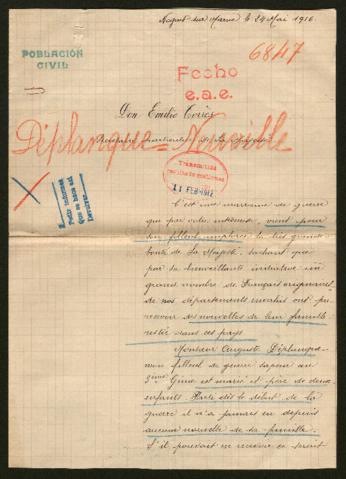 Nogent sur Marne le 24 Mai 1916.
POBLACIÓN
CIVIL
6847
Fecho
e.a.e.
Don Emilio Torrès
Déplanque = Neuville
Secrétaire particulier de Sa Majesté
11 FEB 1917
C'est une marraine de guerre
qui par votre intermédiaire, vient pour
son filleul implorer la très grande
bonté de Sa Majesté, sachant que
par sa bienveillante initiative un
grand nombre de Français originaires
de nos départements envahis ont pu
recevoir des nouvelles de leur famille
restée dans ces pays
Monsieur Auguste Déplanque
mon filleul de guerre sapeur au
3ème Génie est marié et père de deux
enfants. Parti dès le début de la
guerre il n'a jamais eu depuis
aucune nouvelle de sa famille.
S'il pouvait en recevoir ce serait